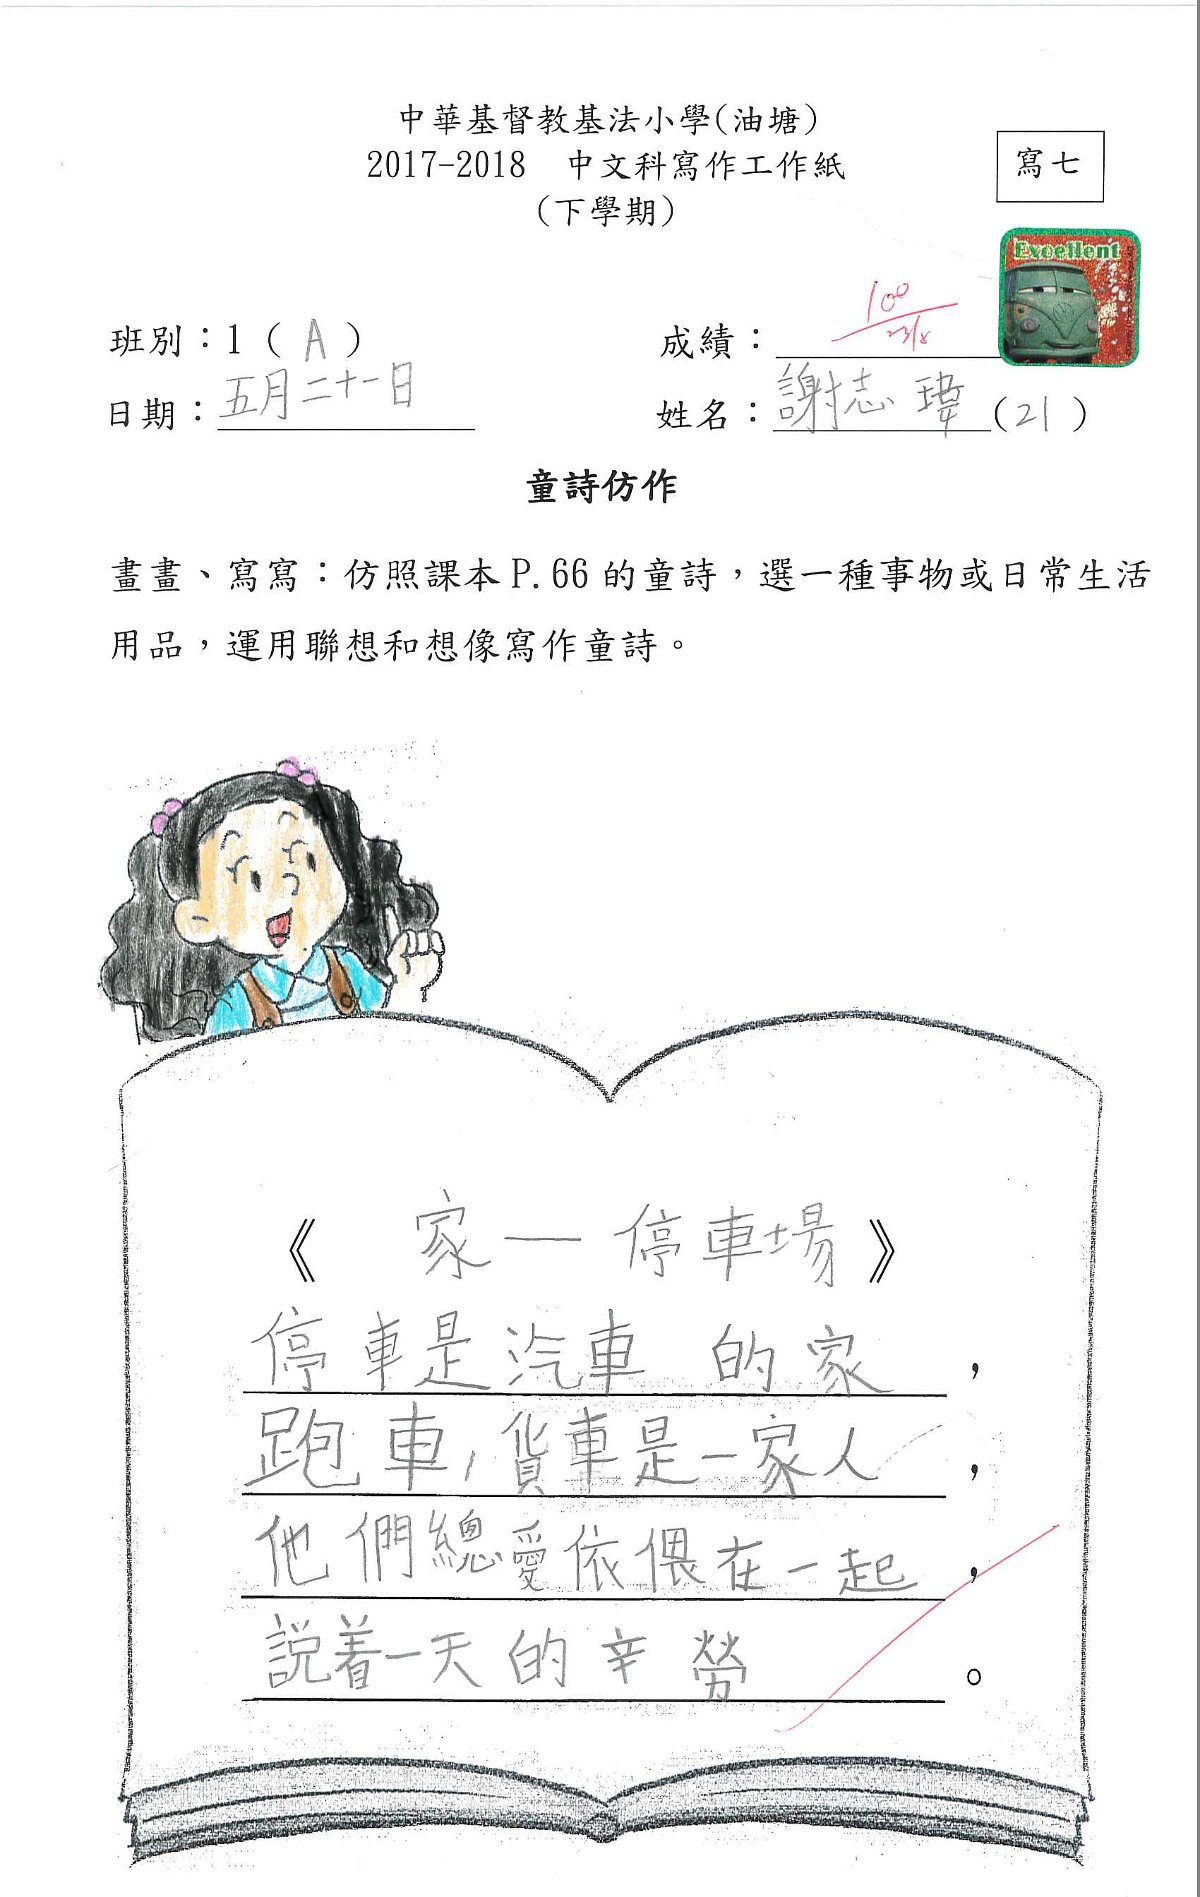 中華基督教基法小學(油塘)
2017-2018 中文科寫作工作紙
(下學期)
寫七
Excellent
班別：1 ( A )
成績：100
23/5
日期：五月二十一日
姓名：謝志瑋(21)
童詩仿作
畫畫、寫寫：仿照課本 P.66 的童詩，選一種事物或日常生活
用品，運用聯想和想像寫作童詩。
《 家—停車場》
停車是汽車的家，
跑車，貨車是一家人，
他們總愛依偎在一起，
說着一天的辛勞。